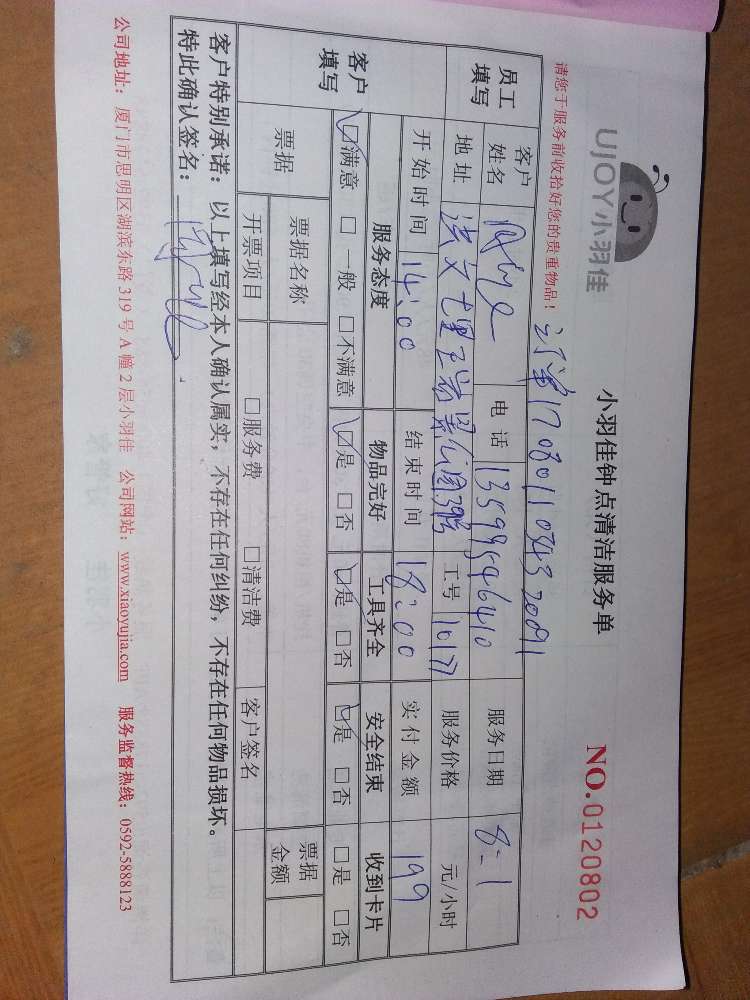 UJOY小羽佳
小羽佳钟点清洁服务单
NO.0120802
请您于服务前收拾好您的贵重物品！
订单17080110343 20091
员工填写 客户姓名 电话 13599546410 服务日期 8-1
地址 洪文七里 工号 10177 服务价格 元/小时
开始时间 14:00 结束时间 18:00 实付金额 199
客户填写 服务态度 物品完好 工具齐全 安全结束 收到卡片
☑满意 □一般 □不满意 ☑是 □否 ☑是 □否 ☑是 □否 □是 □否
票据 票据名称 票据金额
开票项目 □服务费 □清洁费 客户签名
客户特别承诺：以上填写经本人确认属实，不存在任何纠纷，不存在任何物品损坏。
特此确认签名：
公司地址：厦门市思明区湖滨东路 319 号 A 幢 2 层小羽佳 公司网站：www.xiaoyujia.com 服务监督热线：0592-5888123